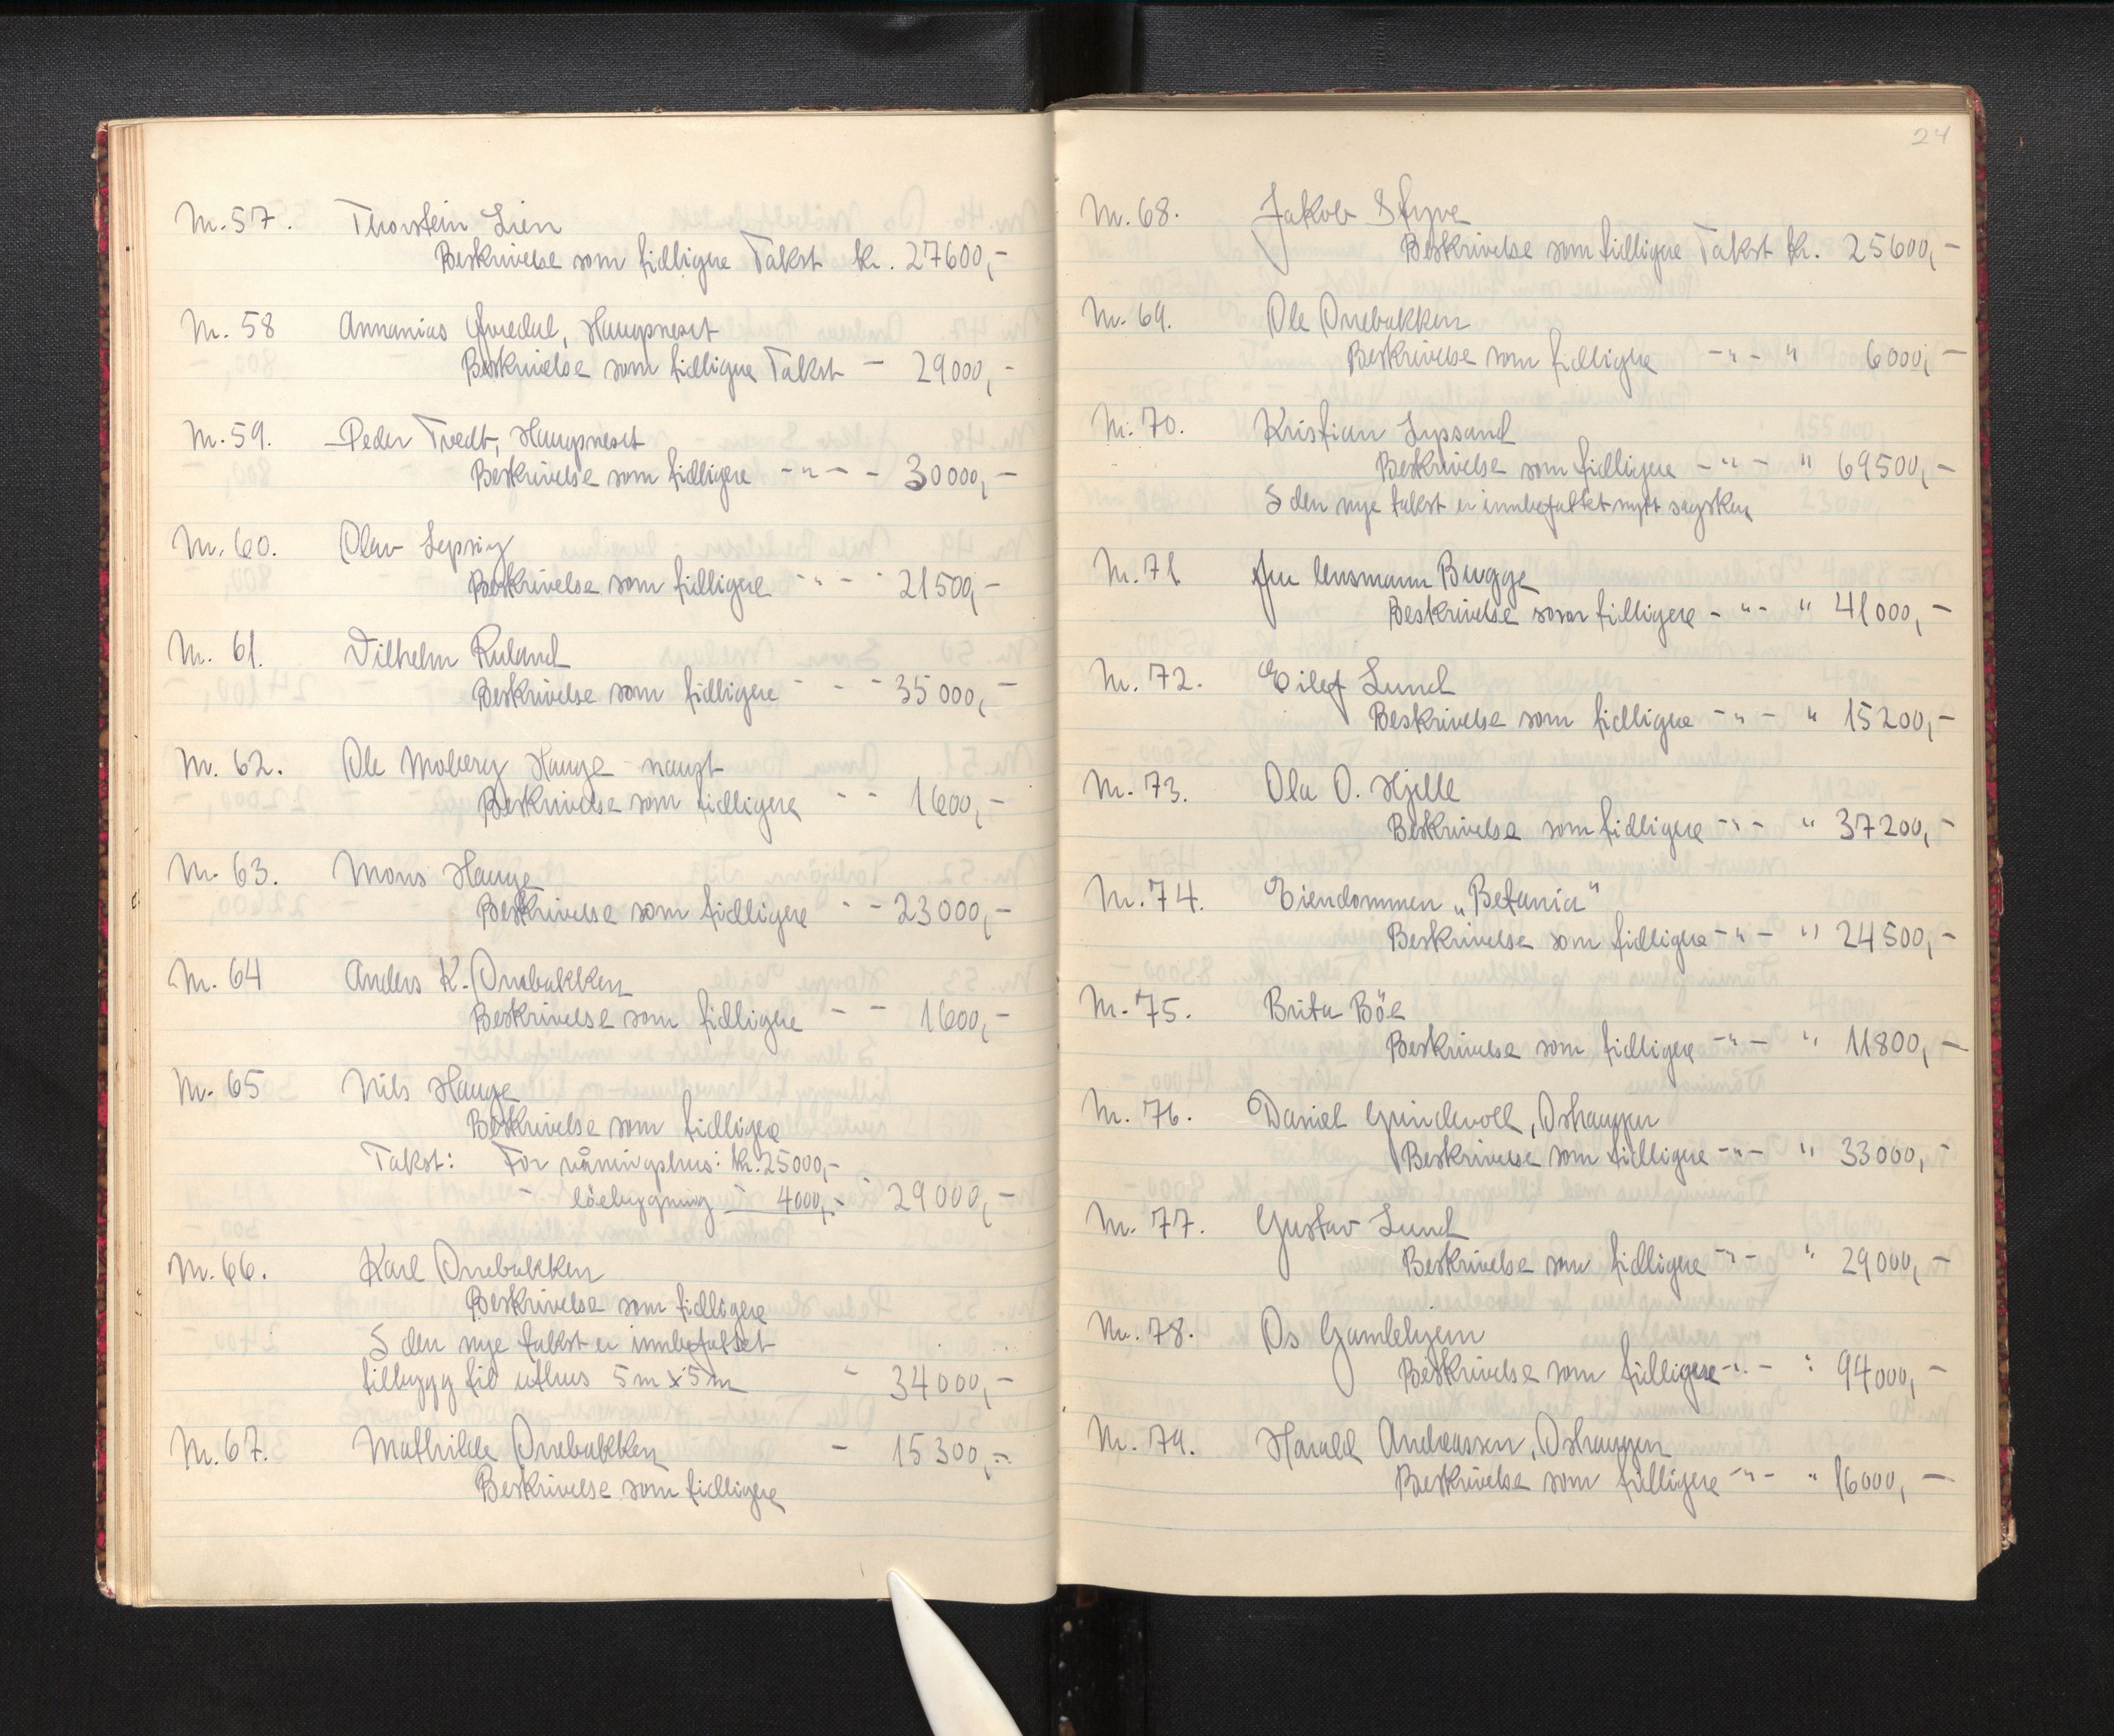 Nr. 57. Thorstein Lien
Beskrivelse som tidligere Takst kr. 27600,-
Nr. 58 Annanias Qvredal, Haugsneset
Beskrivelse som tidligere Takst - 29000,-
Nr. 59. Peder Tvedt, Haugsneset
Beskrivelse som tidligere -"- - 30000,-
Nr. 60. Olav Lepsøy
Beskrivelse som tidligere -"- " 21500,-
Nr. 61. Vilhelm Røland
Beskrivelse som tidligere - - - 35000,-
Nr. 62. Ole Moberg Hauge - naust
Beskrivelse som tidligere - - 1600,-
Nr. 63. Mons Hauge
Beskrivelse som tidligere - - 23000,-
Nr. 64 Anders K. Ornebakken
Beskrivelse som tidligere - - 1600,-
Nr. 65 Nils Hauge
Beskrivelse som tidligere
Takst: For våningshus: kr. 25000,-
- löebygning - 4000,- - 29000,-
Nr. 66. Karl Ornebakken
Beskrivelse som tidligere
I den nye takst er innbefattet
tilbygg til uthus 5m x 5m " 34000,-
Nr. 67. Mathilde Ornebakken - 15300,-
Beskrivelse som tidligere
24
Nr. 68. Jakob Styve
Beskrivelse som tidligere Takst kr. 25600,-
Nr. 69. Ole Ornebakken
Beskrivelse som tidligere -"- " 6000,-
Nr. 70. Kristian Lyssand
Beskrivelse som tidligere -"- " 69500,-
I den nye takst er innbefattet nytt sagskur
Nr. 71 Fru lensmann Bugge
Beskrivelse som tidligere -"- " 41000,-
Nr. 72. Eilef Lund
Beskrivelse som tidligere -"- " 15200,-
Nr. 73. Ola O. Hjelle
Beskrivelse som tidligere -"- " 37200,-
Nr. 74. Eiendommen „Betania"
Beskrivelse som tidligere -"- " 24500,-
Nr. 75. Brita Böe
Beskrivelse som tidligere -"- " 11800,-
Nr. 76. Daniel Grindevoll, Oshaugen
Beskrivelse som tidligere -"- " 33000,-
Nr. 77. Gustav Lund
Beskrivelse som tidligere -"- " 29000,-
Nr. 78. Os Gamlehjem
Beskrivelse som tidligere -"- " 94000,-
Nr. 79. Harald Andreassen, Oshaugen
Beskrivelse som tidligere -"- " 16000,-